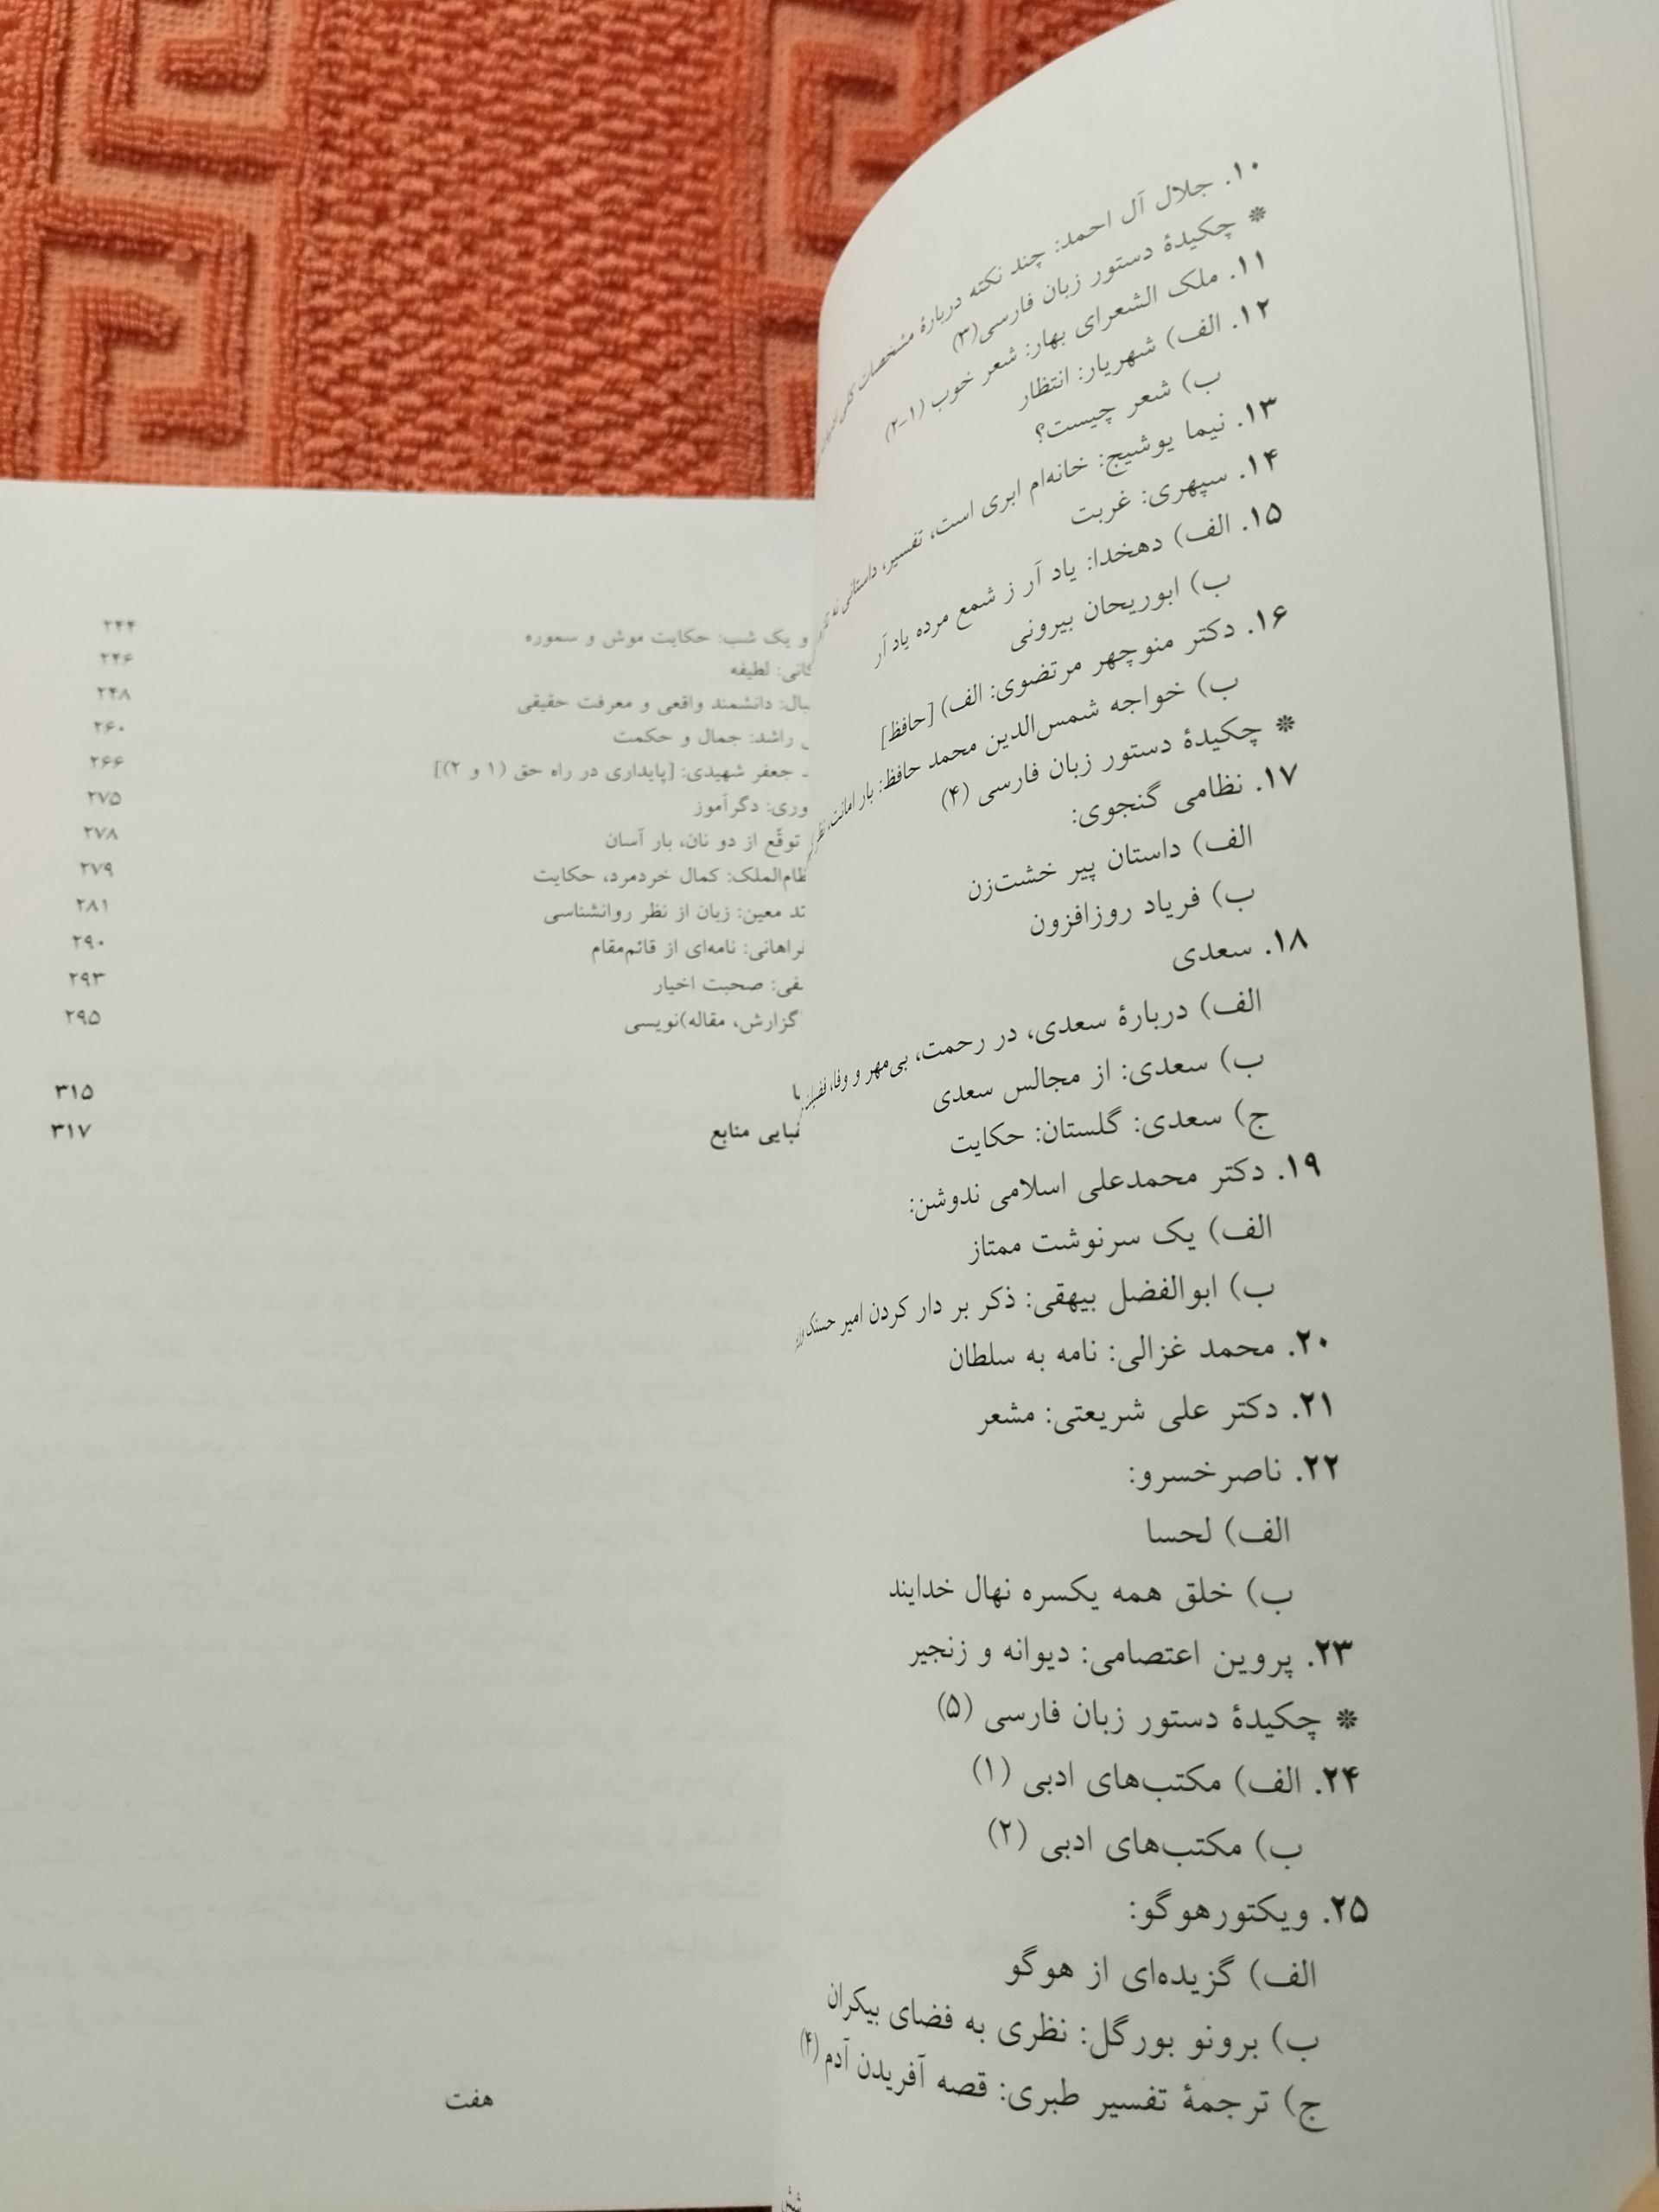 ۱۰. جلال آل احمد: چند نکته دربارهٔ مشخصات کلی
* چکیدهٔ دستور زبان فارسی(۳)
۱۱. ملک الشعرای بهار: شعر خوب (۱-۲)
۱۲. الف) شهریار: انتظار
ب) شعر چیست؟
۱۳. نیما یوشیج: خانه‌ام ابری است، تفسیر، داستانی نه
۱۴. سپهری: غربت
۱۵. الف) دهخدا: یاد آر ز شمع مرده یاد آر
ب) ابوریحان بیرونی
۱۶. دکتر منوچهر مرتضوی: الف) [حافظ]
ب) خواجه شمس‌الدین محمد حافظ: بار امانت،
* چکیدهٔ دستور زبان فارسی (۴)
۱۷. نظامی گنجوی:
الف) داستان پیر خشت‌زن
ب) فریاد روزافزون
۱۸. سعدی
الف) دربارهٔ سعدی، در رحمت، بی‌مهر و وفا،
ب) سعدی: از مجالس سعدی
ج) سعدی: گلستان: حکایت
۱۹. دکتر محمدعلی اسلامی ندوشن:
الف) یک سرنوشت ممتاز
ب) ابوالفضل بیهقی: ذکر بر دار کردن امیر حسنک
۲۰. محمد غزالی: نامه به سلطان
۲۱. دکتر علی شریعتی: مشعر
۲۲. ناصرخسرو:
الف) لحسا
ب) خلق همه یکسره نهال خدایند
۲۳. پروین اعتصامی: دیوانه و زنجیر
* چکیدهٔ دستور زبان فارسی (۵)
۲۴. الف) مکتب‌های ادبی (۱)
ب) مکتب‌های ادبی (۲)
۲۵. ویکتورهوگو:
الف) گزیده‌ای از هوگو
ب) برونو بورگل: نظری به فضای بیکران
ج) ترجمهٔ تفسیر طبری: قصه آفریدن آدم (۴)
شش
و یک شب: حکایت موش و سموره ۲۴۴
کانی: لطیفه ۲۴۶
بال: دانشمند واقعی و معرفت حقیقی ۲۴۸
راشد: جمال و حکمت ۲۶۰
د جعفر شهیدی: [پایداری در راه حق (۱ و ۲)] ۲۶۶
وری: دگرآموز ۲۷۵
توقّع از دو نان، بار آسان ۲۷۸
ظام‌الملک: کمال خردمرد، حکایت ۲۷۹
معین: زبان از نظر روانشناسی ۲۸۱
راهانی: نامه‌ای از قائم‌مقام ۲۹۰
فی: صحبت اخیار ۲۹۳
گزارش، مقاله)نویسی ۲۹۵
۳۱۵
منابع ۳۱۷
هفت